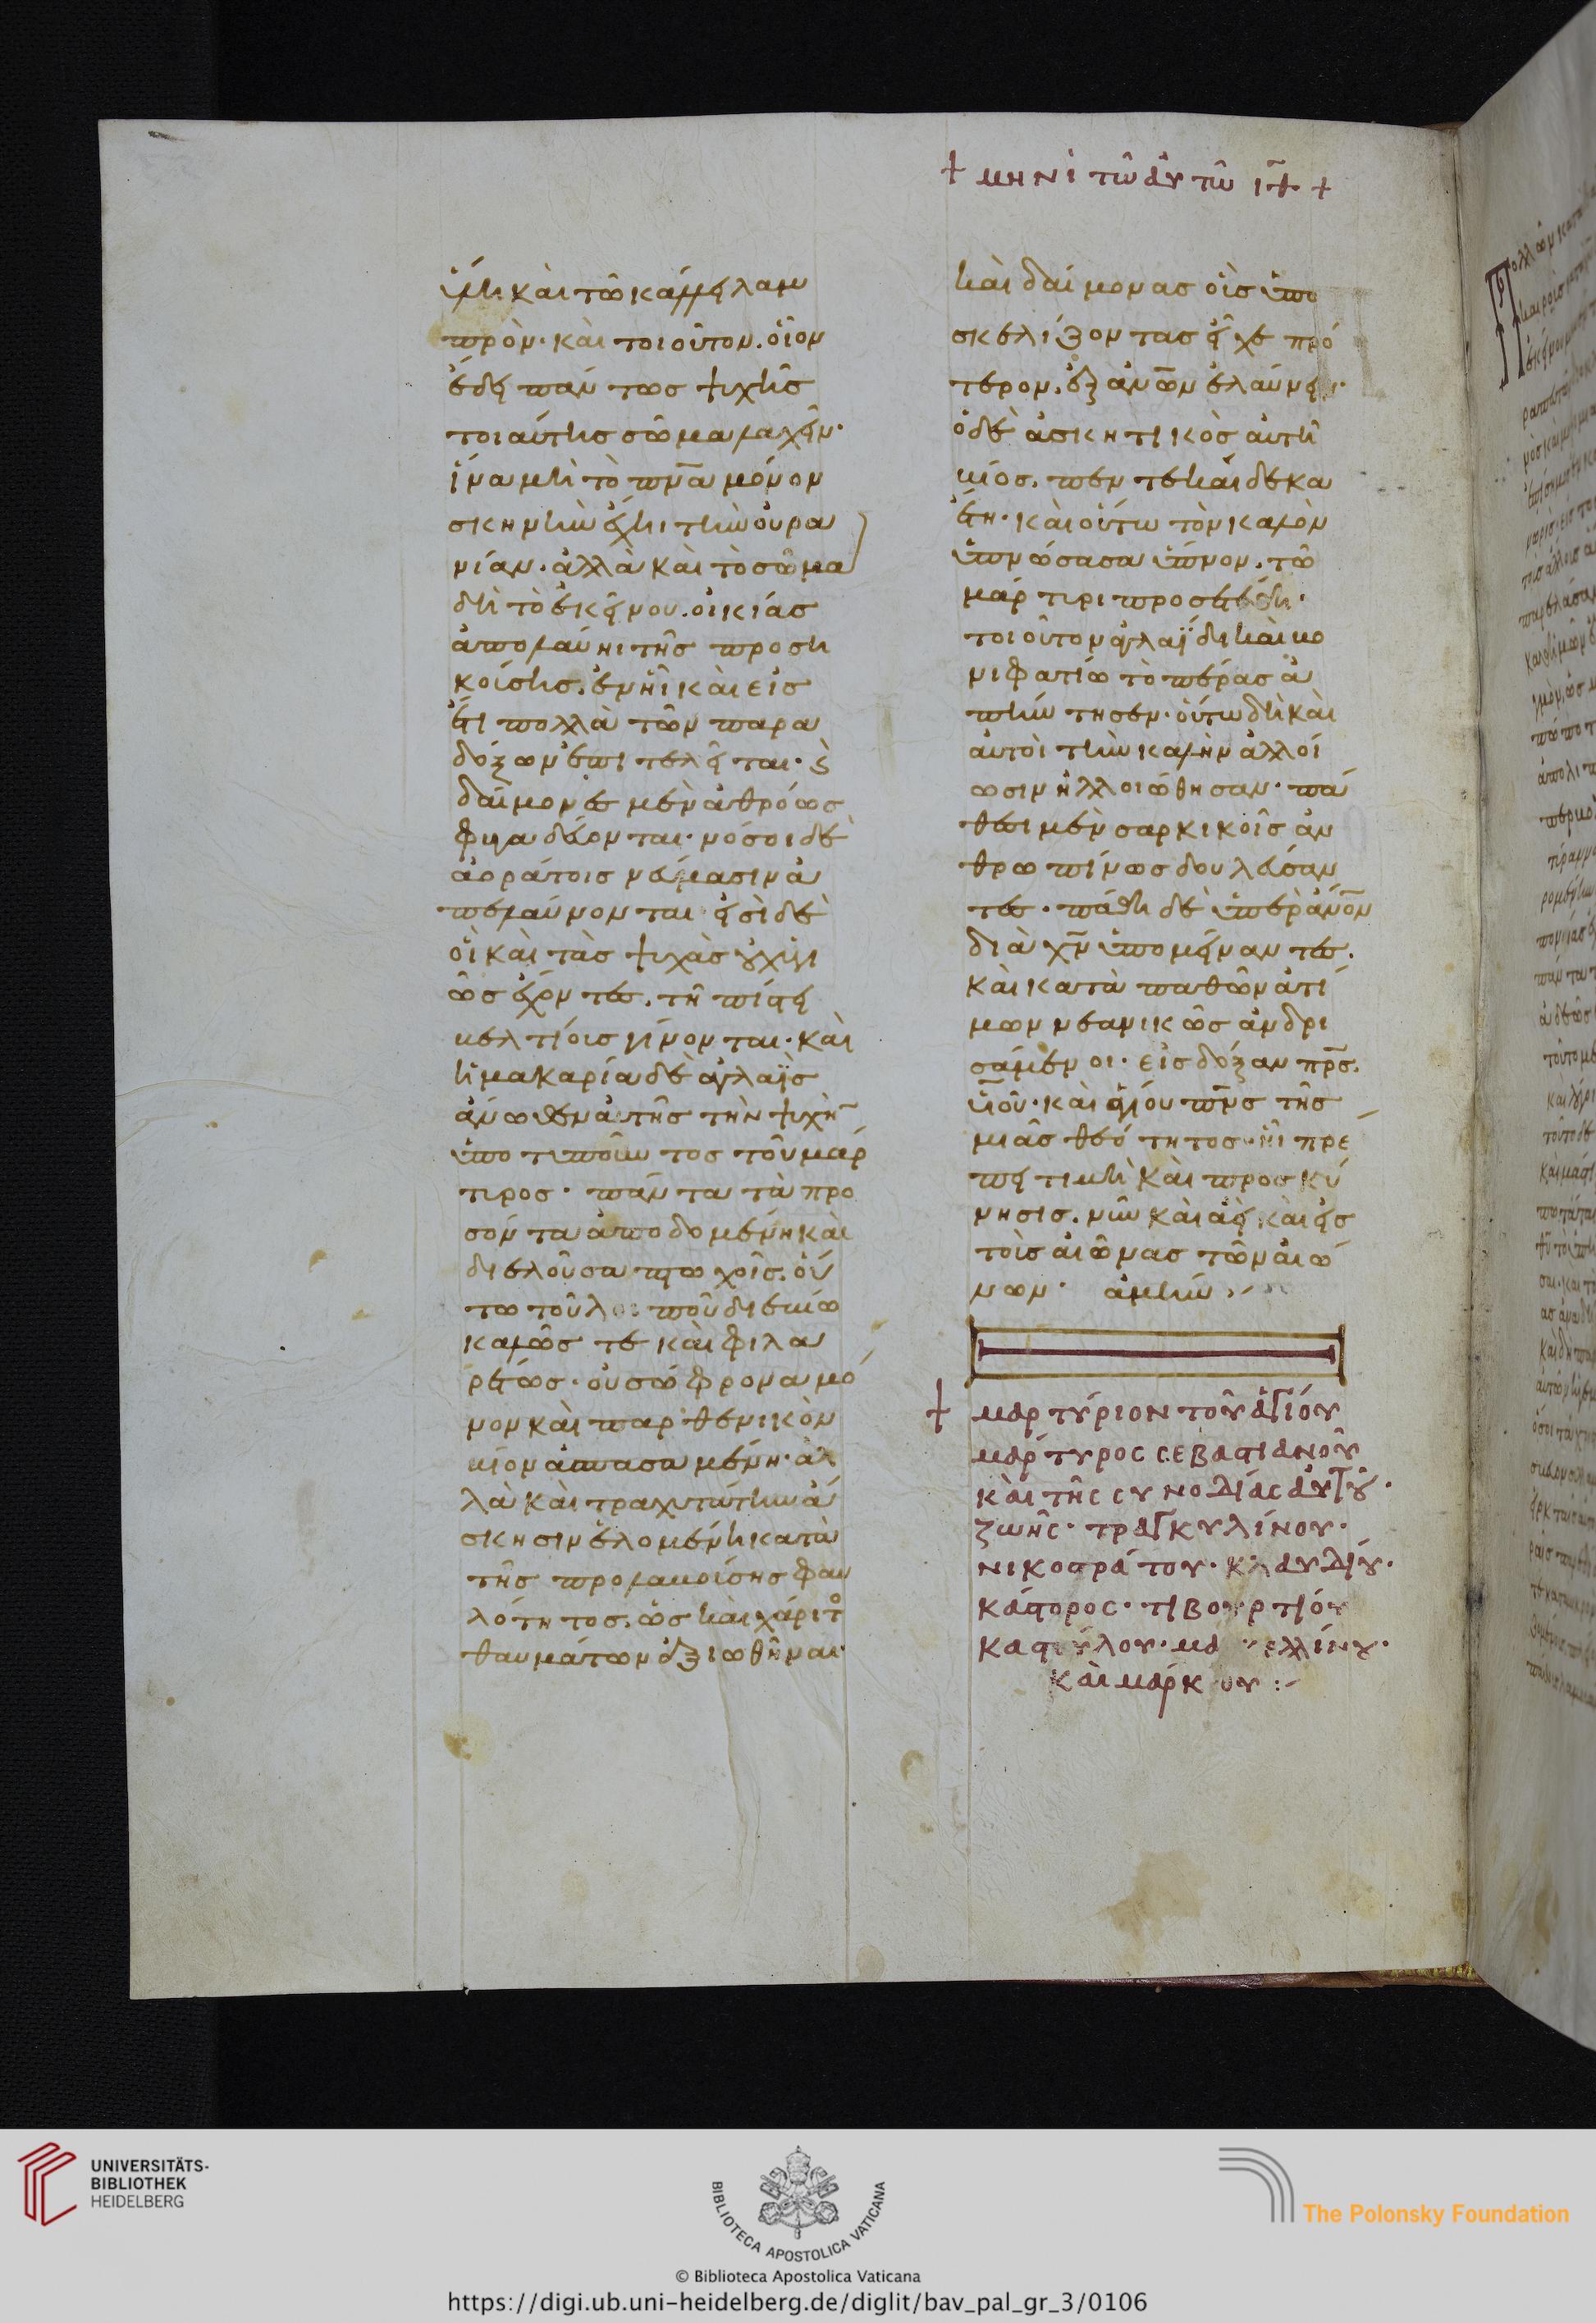 + μηνὶ τῶ αὐτῶ ιη +
ὕλη καὶ τῶ κάλλει λαμ
πρὸν· καὶ τοιοῦτον. οἷον
ἔδει πάντως ψυχῆς
τοιαύτης σῶμα λαχεῖν·
ἵνα μὴ τὸ πν̅α μόνον
σκηνὴν ἔχη τὴν οὐρα
νίαν· ἀλλὰ καὶ τὸ σῶμα
δὴ τὸ ἐκείνου. οἰκίας
ἀπολαύηι τῆς προση
κούσης. ἐν ἧι καὶ εἰς
ἔτι πολλὰ τῶν παρα
δόξων ἐπιτελεῖται· ϛ̀
δαίμονες μὲν ἀθρόως
φυγαδεύονται· νόσοι δὲ
ἀοράτοις νεύμασιν ἀ
πελαύνονται· εἰσὶ δὲ
οἳ καὶ τὰς ψυχὰς οὐχ ὑγι
ῶς ἔχοντες. τῆ πίστει
βελτίους γίνονται· καὶ
ἡ μακαρία δὲ ἀγλαΐς
ἄνωθεν αὐτῆς τὴν ψυχὴ̅
ὑποτυποῦντος τοῦ μάρ
τυρος· πάντα τὰ προ
σόντα ἀποδομένη καὶ
διελοῦσα πτωχοῖς. οὕ
τω τοῦ λοιποῦ διεβίω
καλῶς τε καὶ φιλα
ρέτως· οὐ σώφρονα μό
νον καὶ παρθενικὸν
βίον ἀσπασαμένη· ἀλ
λὰ καὶ τραχυτάτην ἄ
σκησιν ἑλομένη κατὰ
τῆς προλαβούσης φαυ
λότητος. ὡς καὶ χάριτο
θαυμάτων ἀξιωθῆναι·
καὶ δαίμονας οἷς ὑπο
σκελίζοντας εἶχε πρό
τερον. ἐξ αν̅ων ἐλαύνειν·
ὁ δὲ ἀσκητικὸς αὐτῆ
βίος. πεντεκαίδεκα
ἔτη· καὶ οὕτω τὸν καλὸν
ὑπνώσασα ὕπνον. τῶ
μάρτυρι προσετέθη·
τοιοῦτον ἀγλαΐδι καὶ βο
νιφατίω τὸ πέρας ἀ
πήντησεν· οὕτω δὴ καὶ
αὐτοὶ τὴν καλὴν ἀλλοί
ωσιν ἠλλοιώθησαν· πά
θεσι μὲν σαρκικοῖς ἀν
θρωπίνως δουλεύσαν
τες· πάθη δὲ ὑπὲρ ἄν̅ον
διὰ χ̅ν ὑπομείναντες.
καὶ κατὰ παθῶν ἀτί
μων νεανικῶς ἀνδρι
σάμενοι· εἰς δόξαν πρ̅ς.
υ̅ιοῦ· καὶ ἁγίου πν̅ς τῆς
μιᾶς θεότητος· ἧι πρέ
πει τιμὴ καὶ προσκύ
νησις. νῦν καὶ ἀεὶ καὶ εἰς
τοὺς αἰῶνας τῶν αἰώ
νων· ἀμήν
+ μαρτύριον τοῦ ἁγίου
μάρτυρος σεβαστιανοῦ
καὶ τῆς συνοδίας αὐτοῦ·
ζωῆς· τραγκυλίνου·
νικοστράτου· κλαυδίου·
κάστορος· τιβουρτίου
καστύλου· μαρκελλίνου·
καὶ μάρκου :-
UNIVERSITÄTS-
BIBLIOTHEK
HEIDELBERG
BIBLIOTECA APOSTOLICA VATICANA
The Polonsky Foundation
© Biblioteca Apostolica Vaticana
https://digi.ub.uni-heidelberg.de/diglit/bav_pal_gr_3/0106